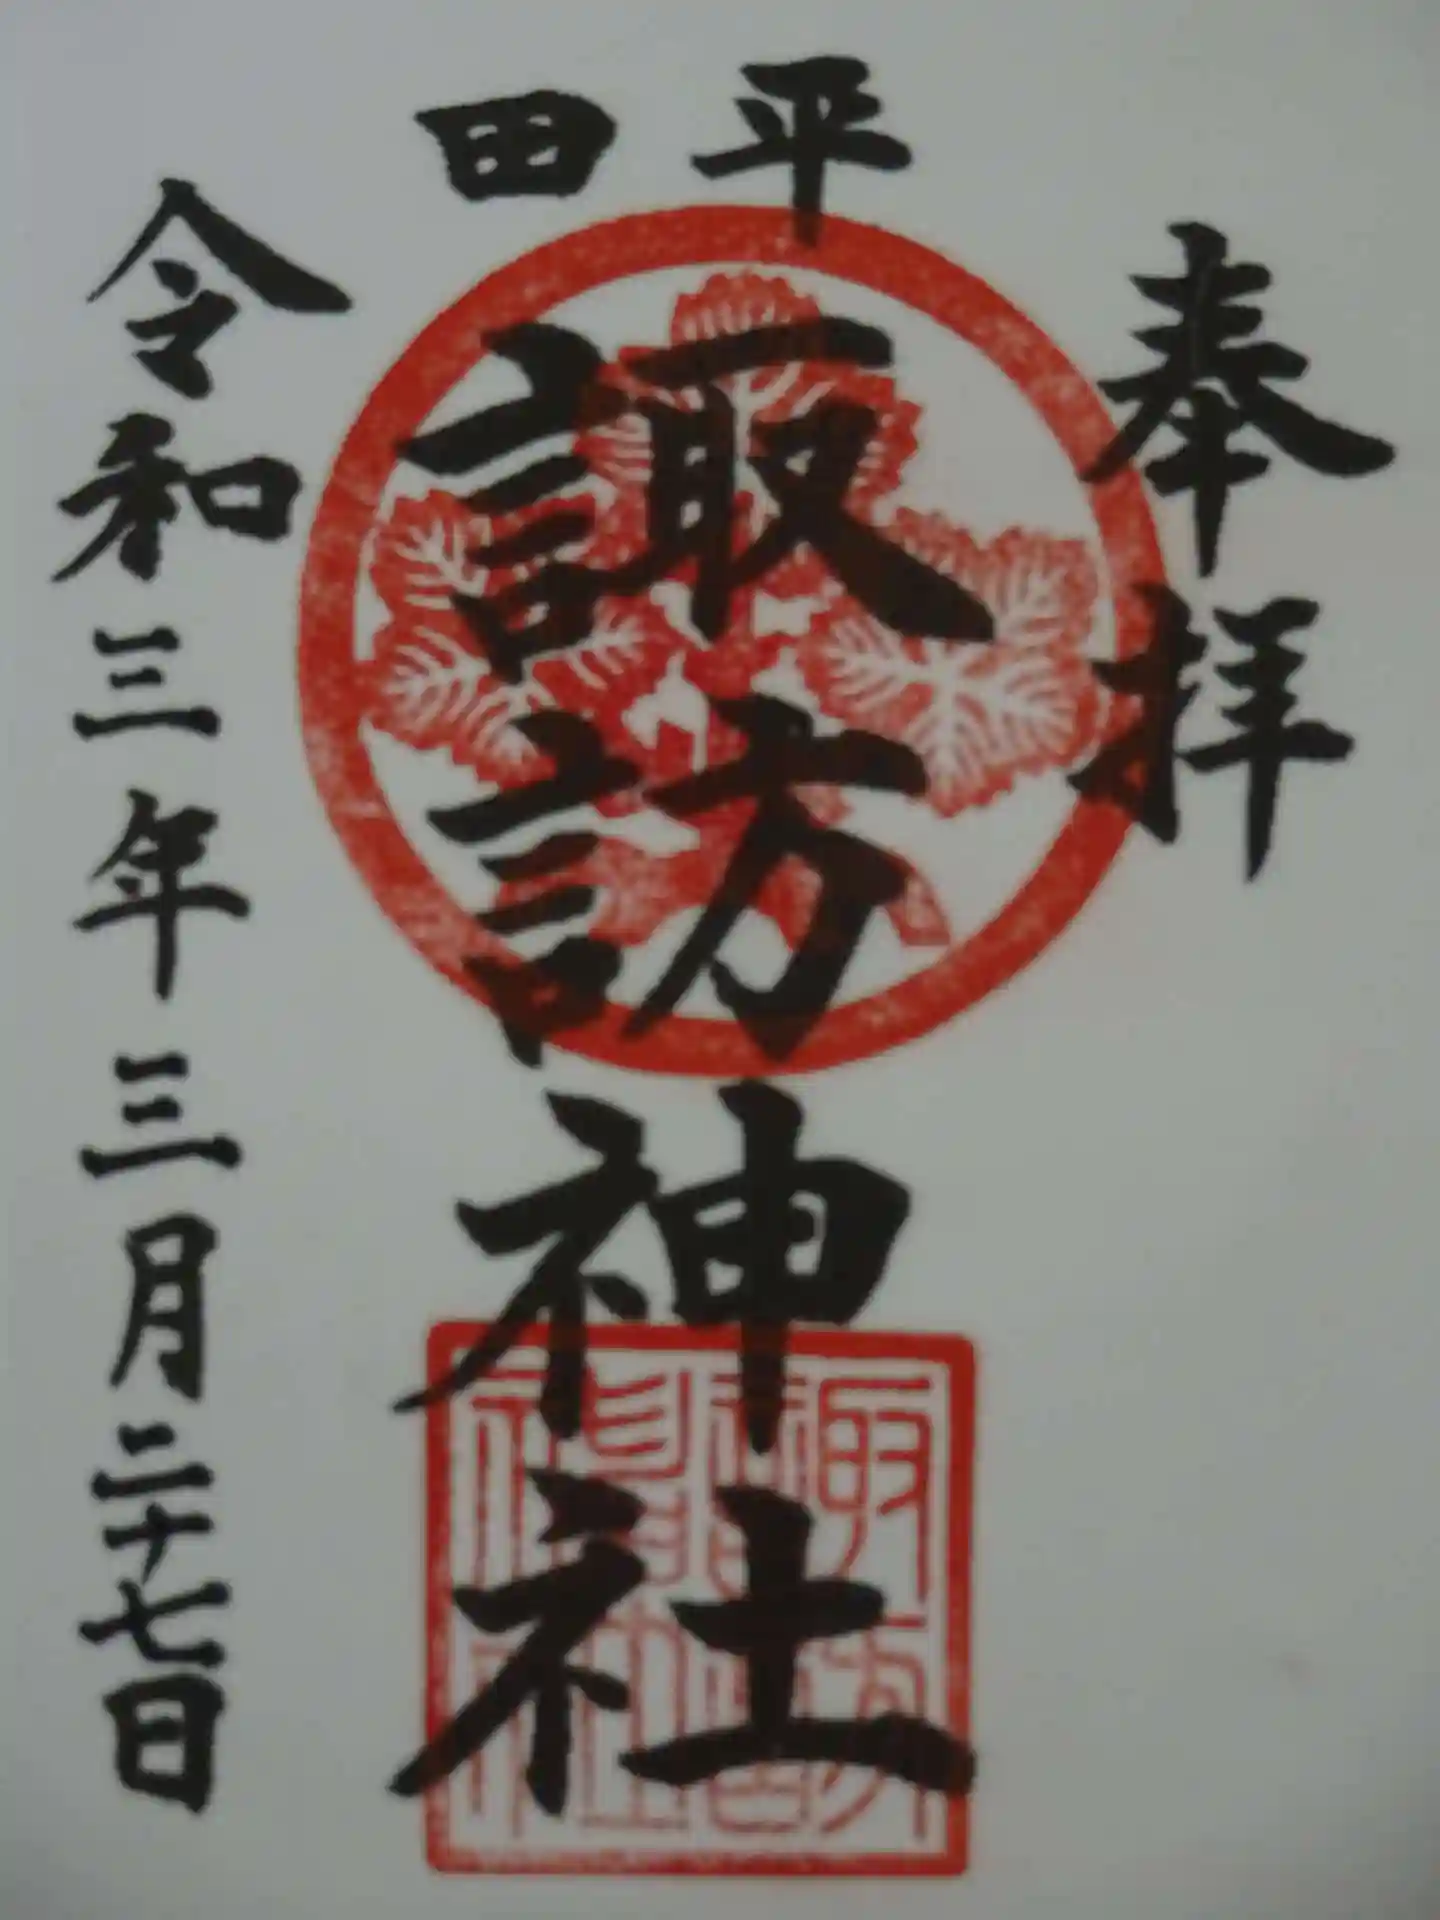 奉拝
平田
諏訪神社
令和三年三月二十七日
諏訪
神社